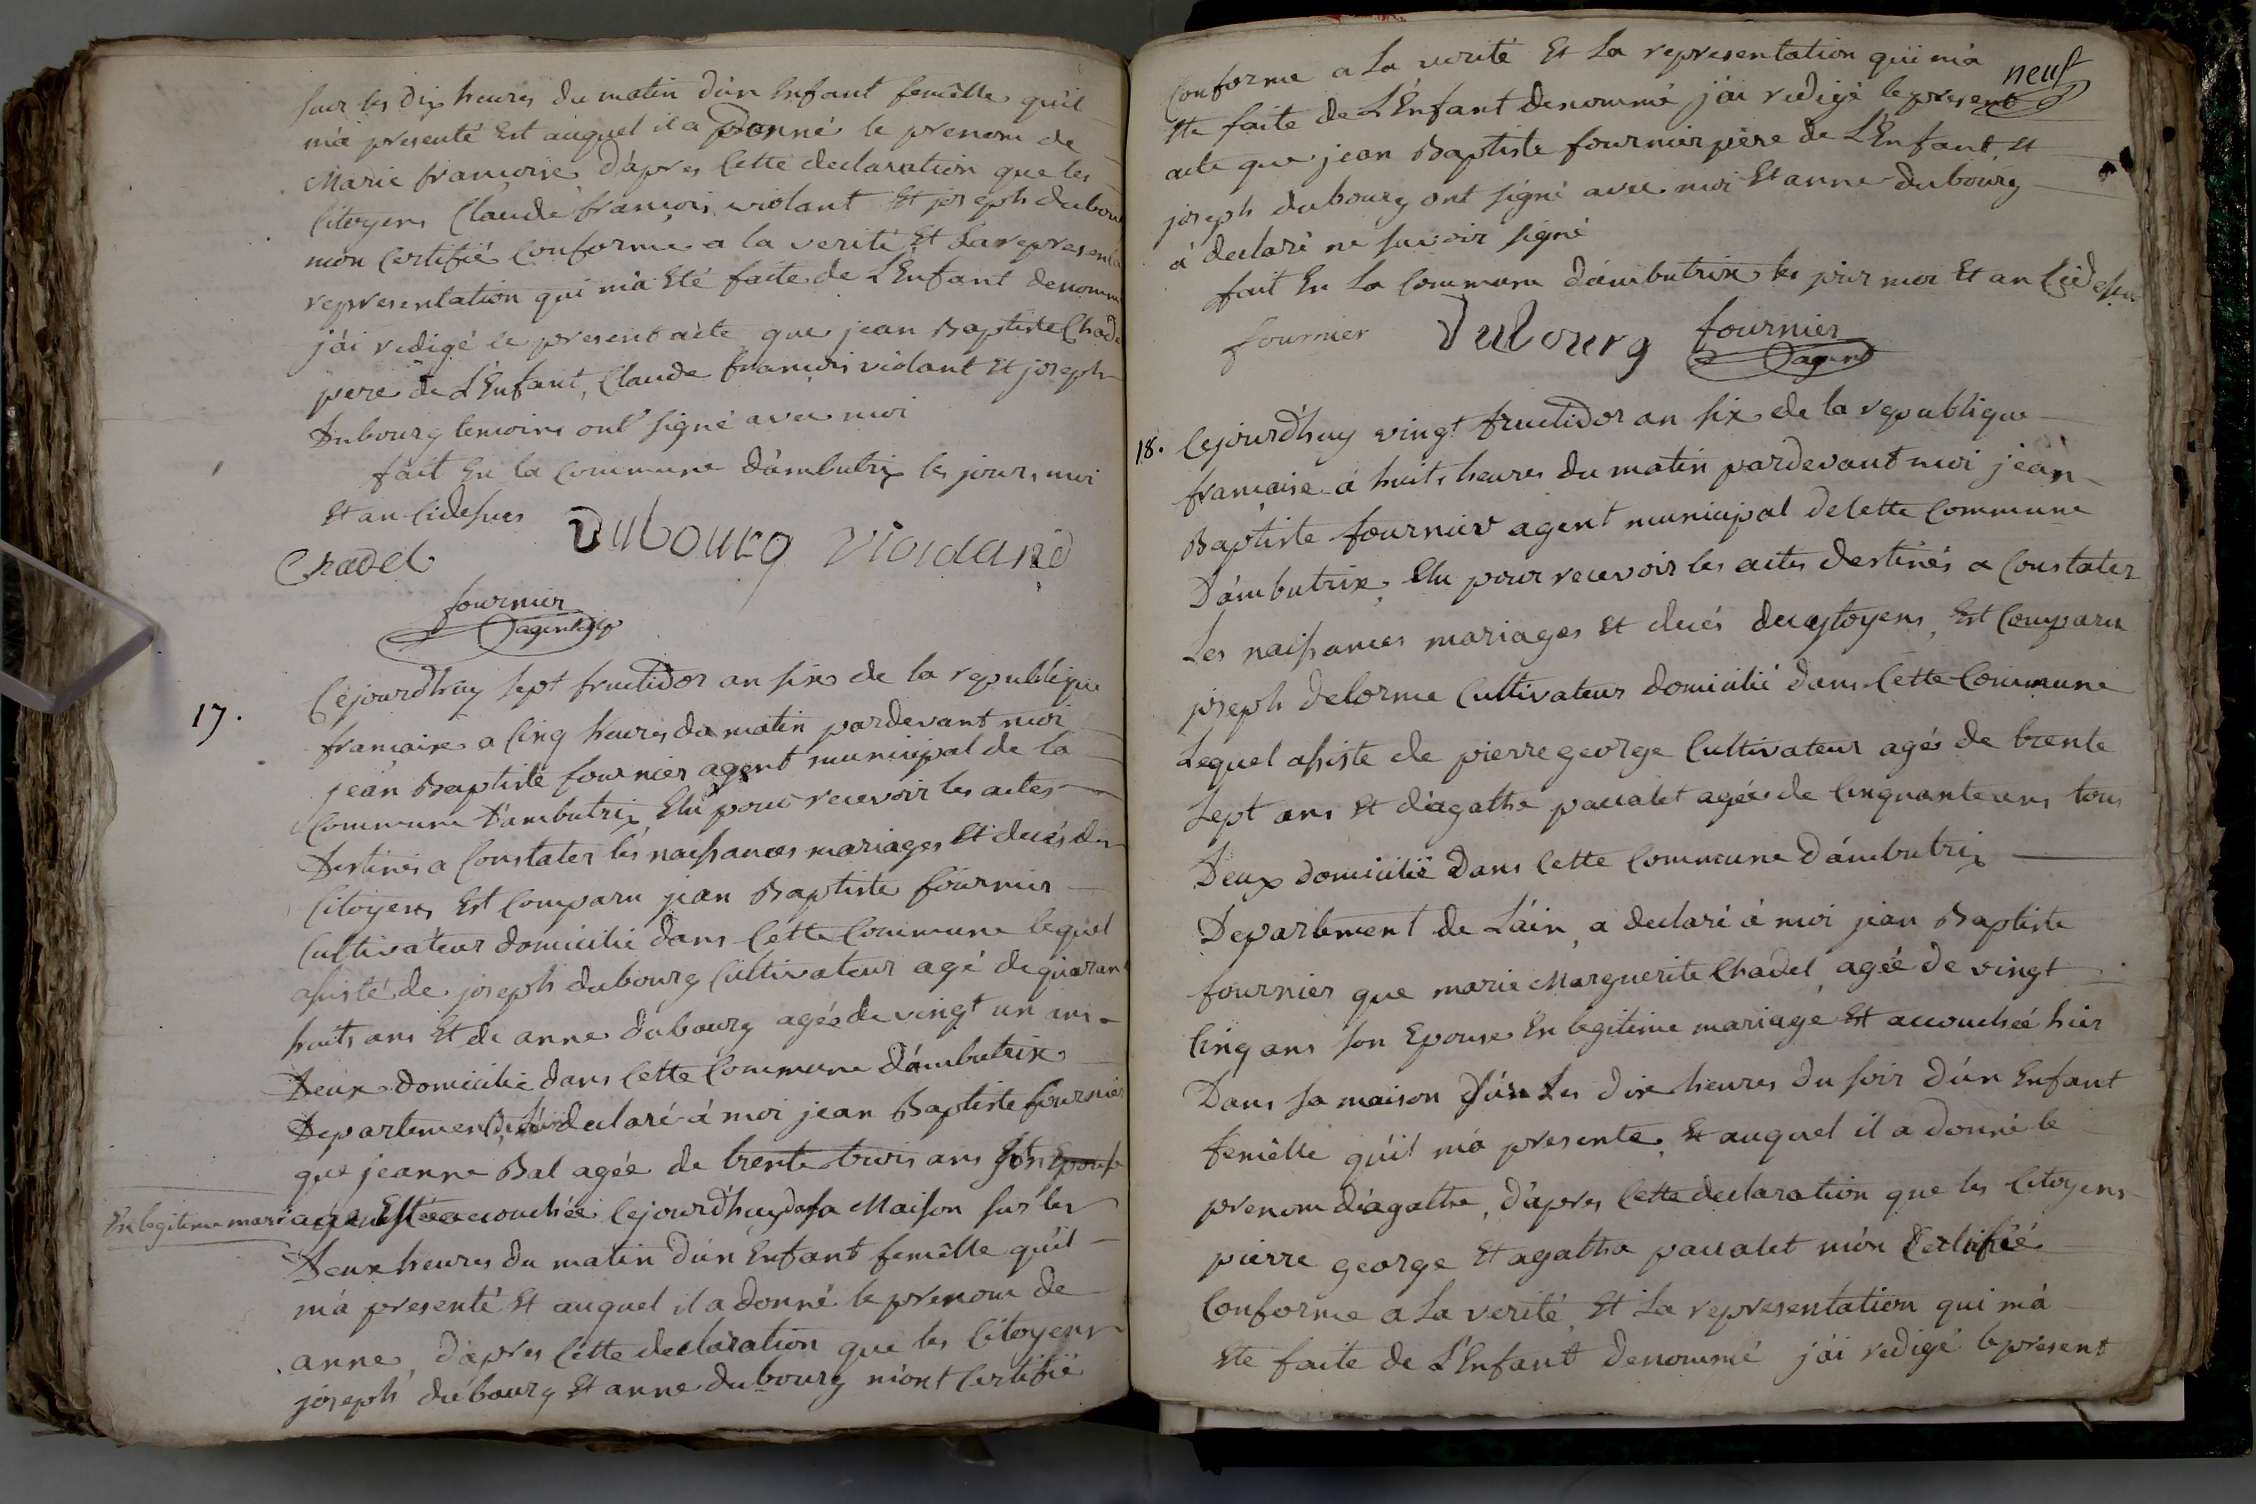 sur les dix heures du matin d'un Enfant femêlle qu'il
m'a presenté Est auquel il a donné le prenom de
Marie françoise, d'apres Cette declaration que les
Citoyens Claude françois violant Et joseph dubour
mon Certifié Conforme a la verité Et la represent
representation qui m'a Eté faite de L'Enfant denomm
j'ai redigé le present acte que jean Baptiste Chade
pere de L'Enfant, Claude françois violant Et joseph
Dubourg temoins ont signé avec moi
fait En la Commune d'ambutrix les jours, moi
Et an Cidessus
Chadel Dubourg violand
fournier
agent
17. Cejourd'huy sept fructidor an six de la republique
française a Cinq heures du matin pardevant moi
jean Baptiste fournier agent municipal de la
Commune D'ambutrix Elu pour recevoir les actes
Destinés a Constater les naissances mariages Et decés des
Citoyens Est Comparu jean Baptiste fournier
Cultivateur domicilié dans Cette Commune lequel
assisté de joseph dubourg Cultivateur agé de quaran
huit ans Et de anne dubourg agée de vingt un ans
Deux domicilié dans Cette Commune d'ambutrix
Departement de L'ain declaré à moi jean Baptiste fournier
que jeanne Bal agée de trente trois ans son Epouse
En legitime mariage Est accouchée Cejourd'huy dans sa Maison sur les
Deux heures du matin d'un Enfant femêlle qu'il
m'a presenté Et auquel il a donné le prenom de
anne, d'apres Cette declaration que les Citoyens
joseph dubourg Et anne dubourg m'ont Certifié
neuf
Conforme a La verité Et La representation qui m'a
Ete faite de L'Enfant denommé j'ai redigé le present
acte que jean Baptiste fournier père de L'Enfant, Et
joseph dubourg ont signé avec moi Et anne dubourg
a declaré ne savoir signé
fait En La Commune d'ambutrix les jour moi Et an Cidessus
fournier Dubourg fournier
agent
18. Cejourd'huy vingt fructidor an six de la republique
francaise à huit heures du matin pardevant moi jean
Baptiste fournier agent municipal de Cette Commune
D'ambutrix, Elu pour recevoir les actes destinés a Constater
Les naissances mariages Et decés des Cytoyens, Est Comparu
joseph delorme Cultivateur domicilié dans Cette Commune
Lequel assiste de pierre george Cultivateur agés de trente
Sept ans Et d'agathe pauatet agée de Cinquante ans tous
Deux domicilié Dans Cette Commune d'ambutrix
Departement de L'ain, a declaré à moi jean Baptiste
fournier que marie Marguerite Chadel, agée de vingt
Cinq ans son Epouse En legitime mariage Est accouchée hier
Dans sa maison sur Les dix heures du soir d'un Enfant
femêlle qu'il m'a presente, Et auquel il a donné le
prenom d'agathe, d'apres Cette declaration que les Citoyens
pierre george Et agathe pauatet m'on Certifié
Conforme a La verité, Et La representation qui m'a
Ete faite de L'Enfant denommé j'ai redigé le present